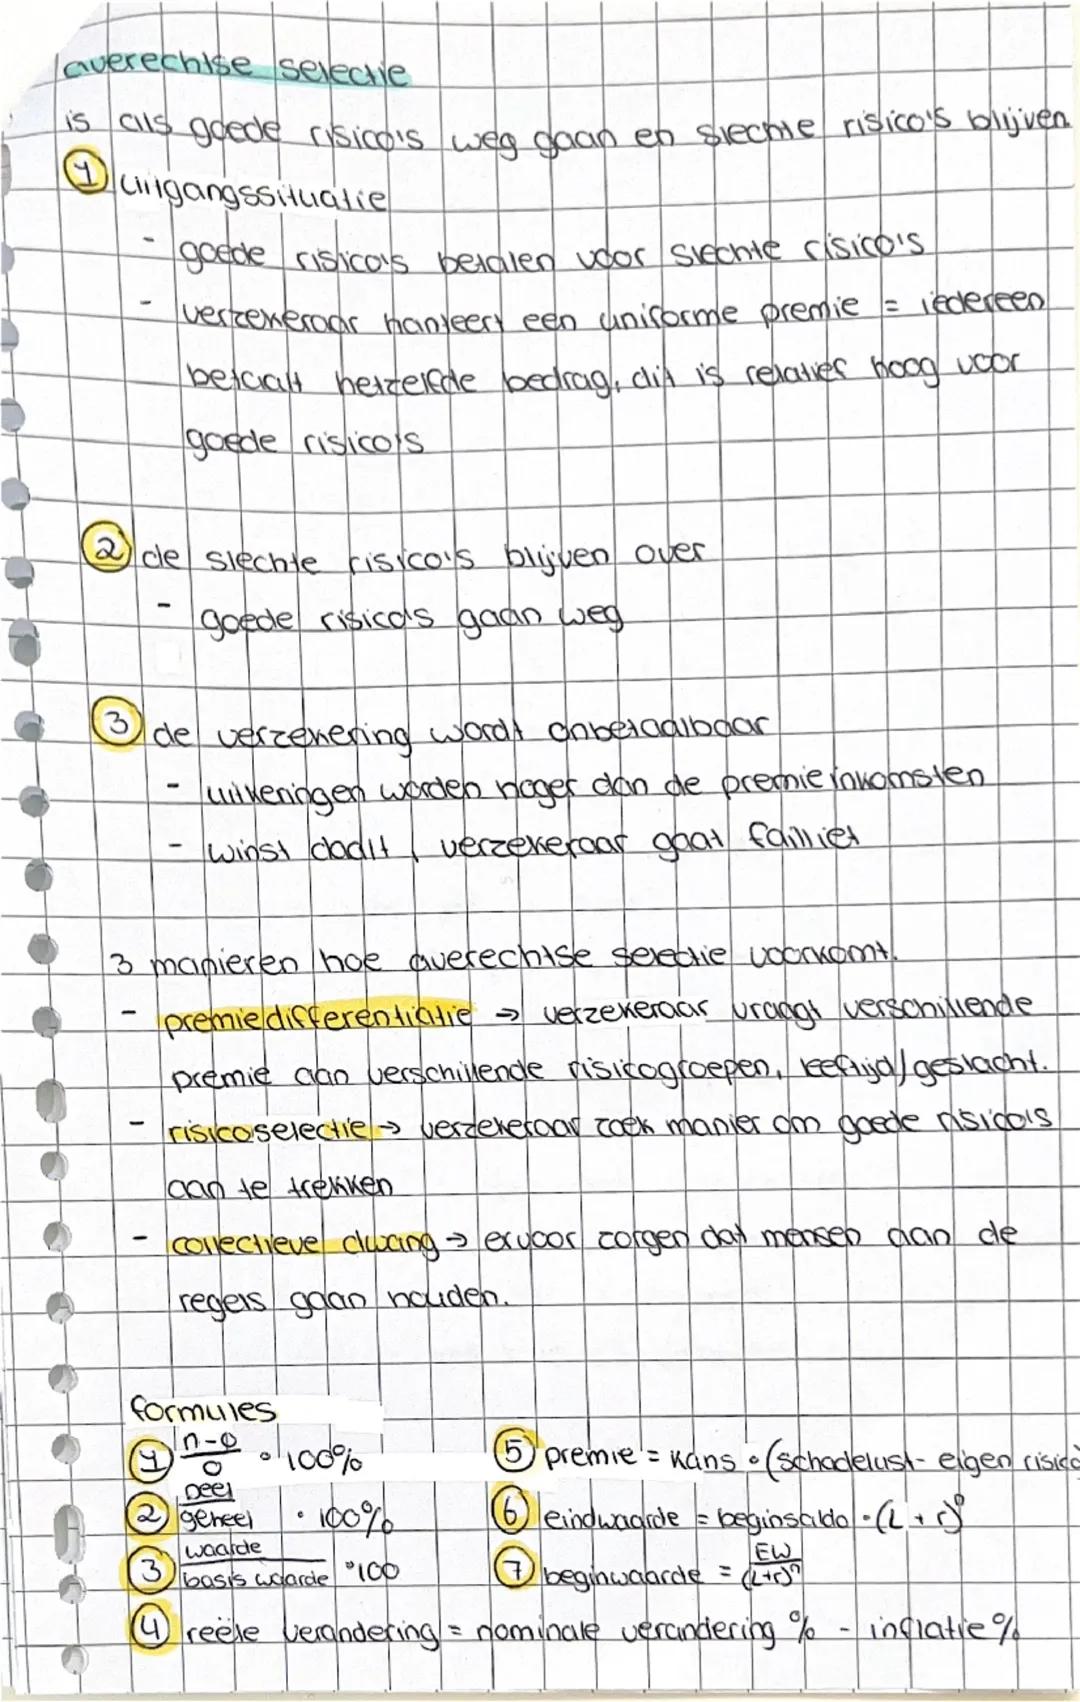 averechtse selectie
is als goede risico's weg gaan en slechte risico's blijven
1 uitgangssituatie
- goede risico's betalen voor slechte risico's
- verzekeraar hanteert een uniforme premie = iedereen
betaalt hetzelfde bedrag, dit is relatief hoog voor
goede risico's
2 de slechte risico's blijven over
- goede risico's gaan weg
3 de verzekering wordt onbetaalbaar
- uitkeringen worden hoger dan de premie inkomsten
- winst daalt, verzekeraar gaat failliet
3 manieren hoe averechtse selectie voorkomt.
- premiedifferentiatie → verzekeraar vraagt verschillende
premie aan verschillende risicogroepen, leeftijd/geslacht.
- risicoselectie → verzekeraar zoek manier om goede risico's
aan te trekken
- collectieve dwang → ervoor zorgen dat mensen aan de
regels gaan houden.
formules
1 n-o/o • 100%
2 deel/geheel • 100%
3 waarde/basis waarde • 100
4 reële verandering = nominale verandering % - inflatie %
5 premie = kans • (schadelust - eigen risico
6 eindwaarde = beginsaldo • (1 + r)ⁿ
7 beginwaarde = EW/(1+r)ⁿ